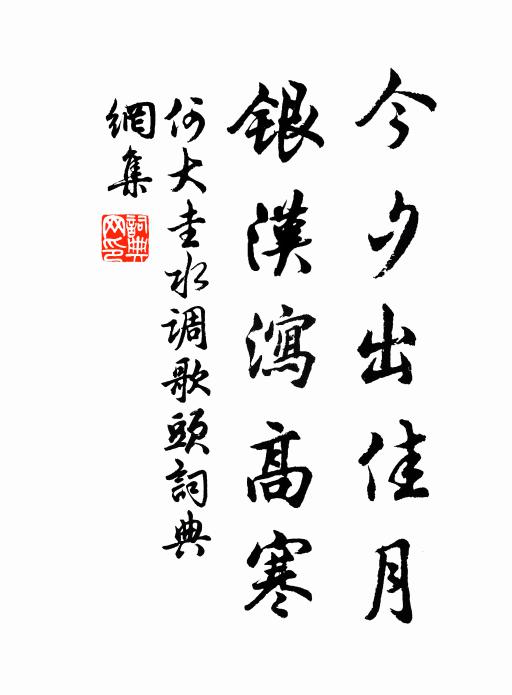 今夕出佳月
銀漢瀉高寒
何大圭水调歌頭詞典
網集
詞典
网印